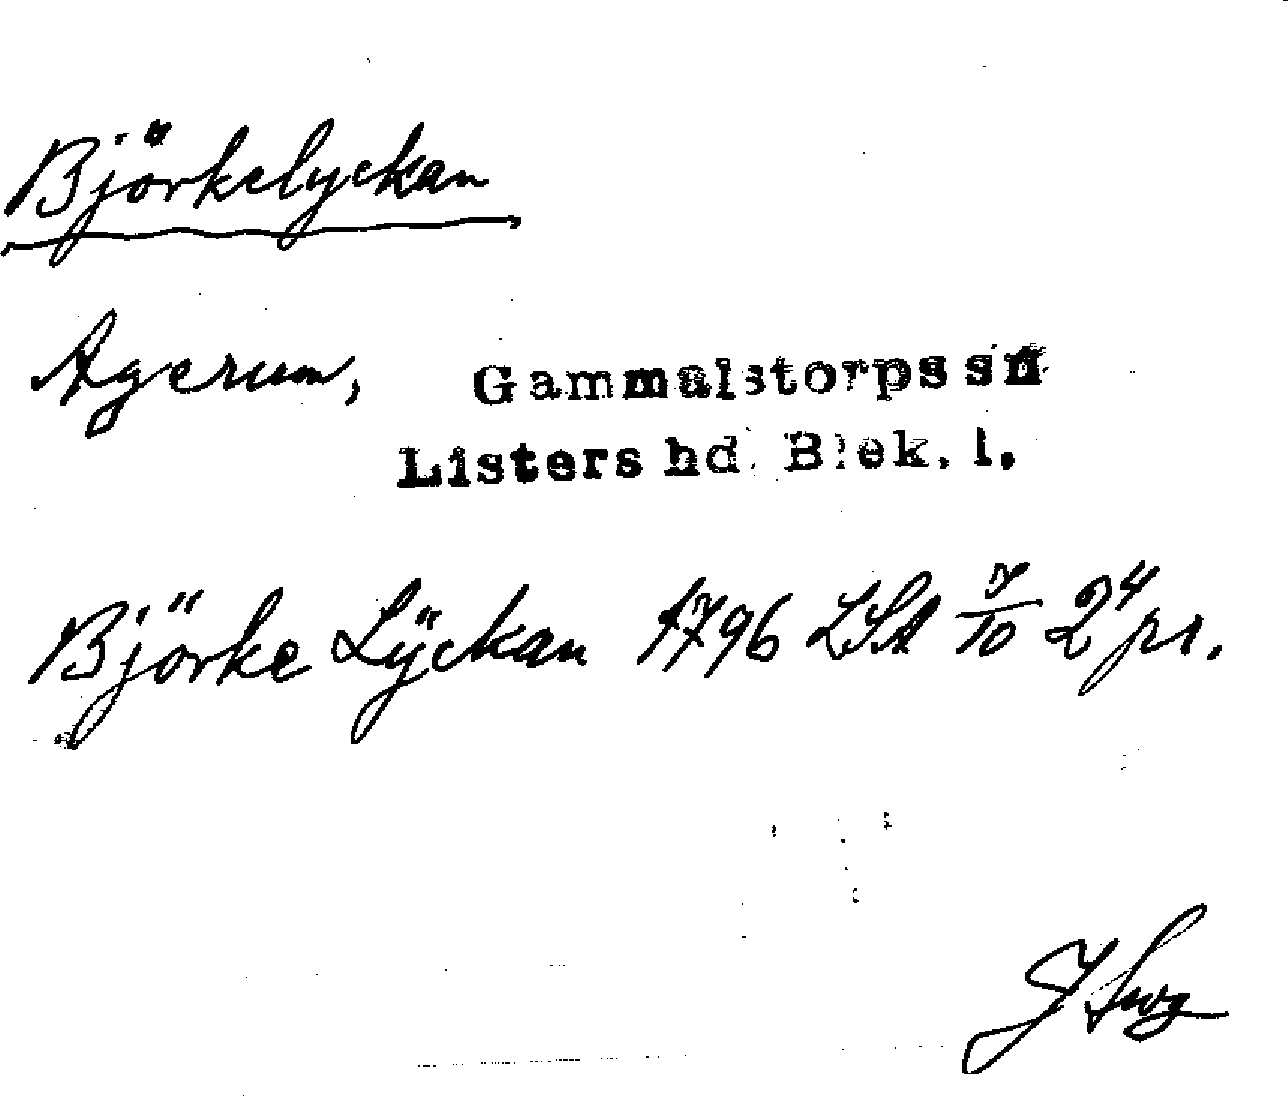 Björkelyckan
Agerum, Gammalstorps sn
Listers hd. Blek. l.
Björke Lÿckan 1796 LSA 7/10 2⁴ pr.